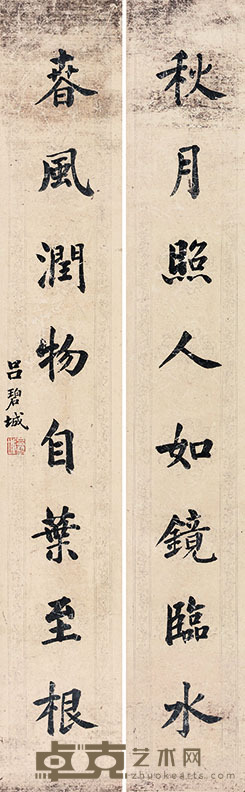 秋月照人如鏡臨水
春風潤物自葉至根
呂碧城
卓克艺术网
zhuokearts.com